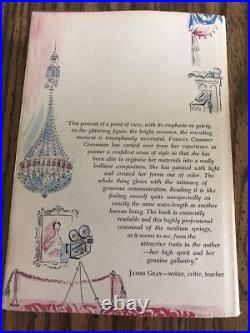 "This portrait of a point of view, with its emphasis on gaiety,
on the glittering figure, the bright occasion, the revealing
moment is triumphantly successful. Frances Cranmer
Greenman has carried over from her experience as
painter a confident sense of style so that she has
been able to organize her materials into a really
brilliant composition. She has painted with light
and created her forms out of color. The
whole thing glows with the intimacy of
generous communication. Reading it is like
finding oneself quite unexpectedly on
exactly the same wave-length as another
human being. The book is eminently
readable and this highly professional
command of the medium springs,
as it seems to me, from the
attractive traits in the author
—her high spirit and her
genuine gallantry."
JAMES GRAY—writer, critic, teacher